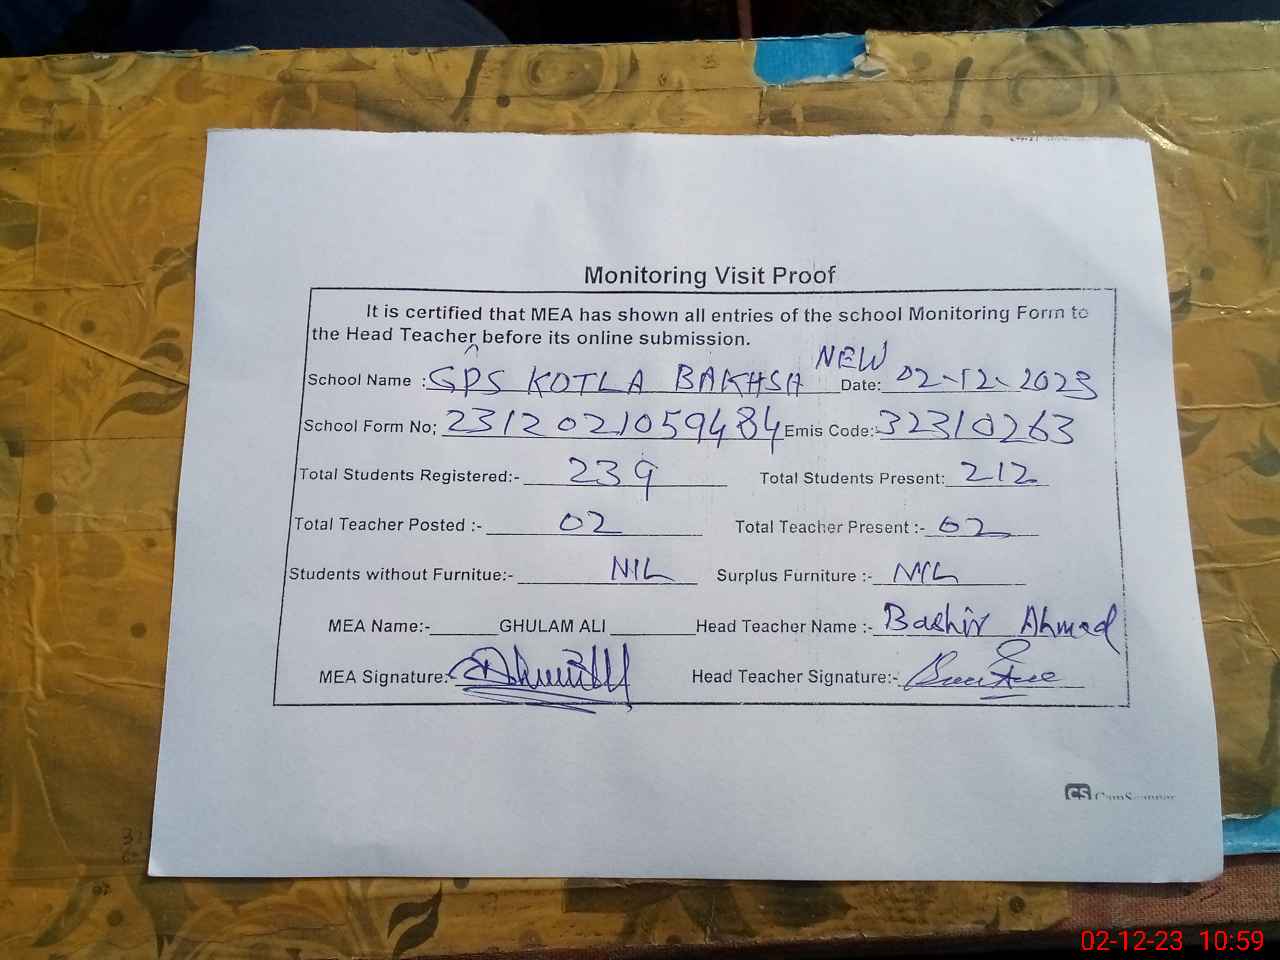 Monitoring Visit Proof
It is certified that MEA has shown all entries of the school Monitoring Form to
the Head Teacher before its online submission.
School Name : GPS KOTLA BAKHSA NEW Date: 02-12-2023
School Form No; 2312021059484 Emis Code:- 32310263
Total Students Registered:- 239 Total Students Present: 212
Total Teacher Posted :- 02 Total Teacher Present :- 02
Students without Furnitue:- NIL Surplus Furniture :- NIL
MEA Name:- GHULAM ALI Head Teacher Name :- Bashir Ahmad
MEA Signature: Head Teacher Signature:-
CS CamScanner
02-12-23 10:59